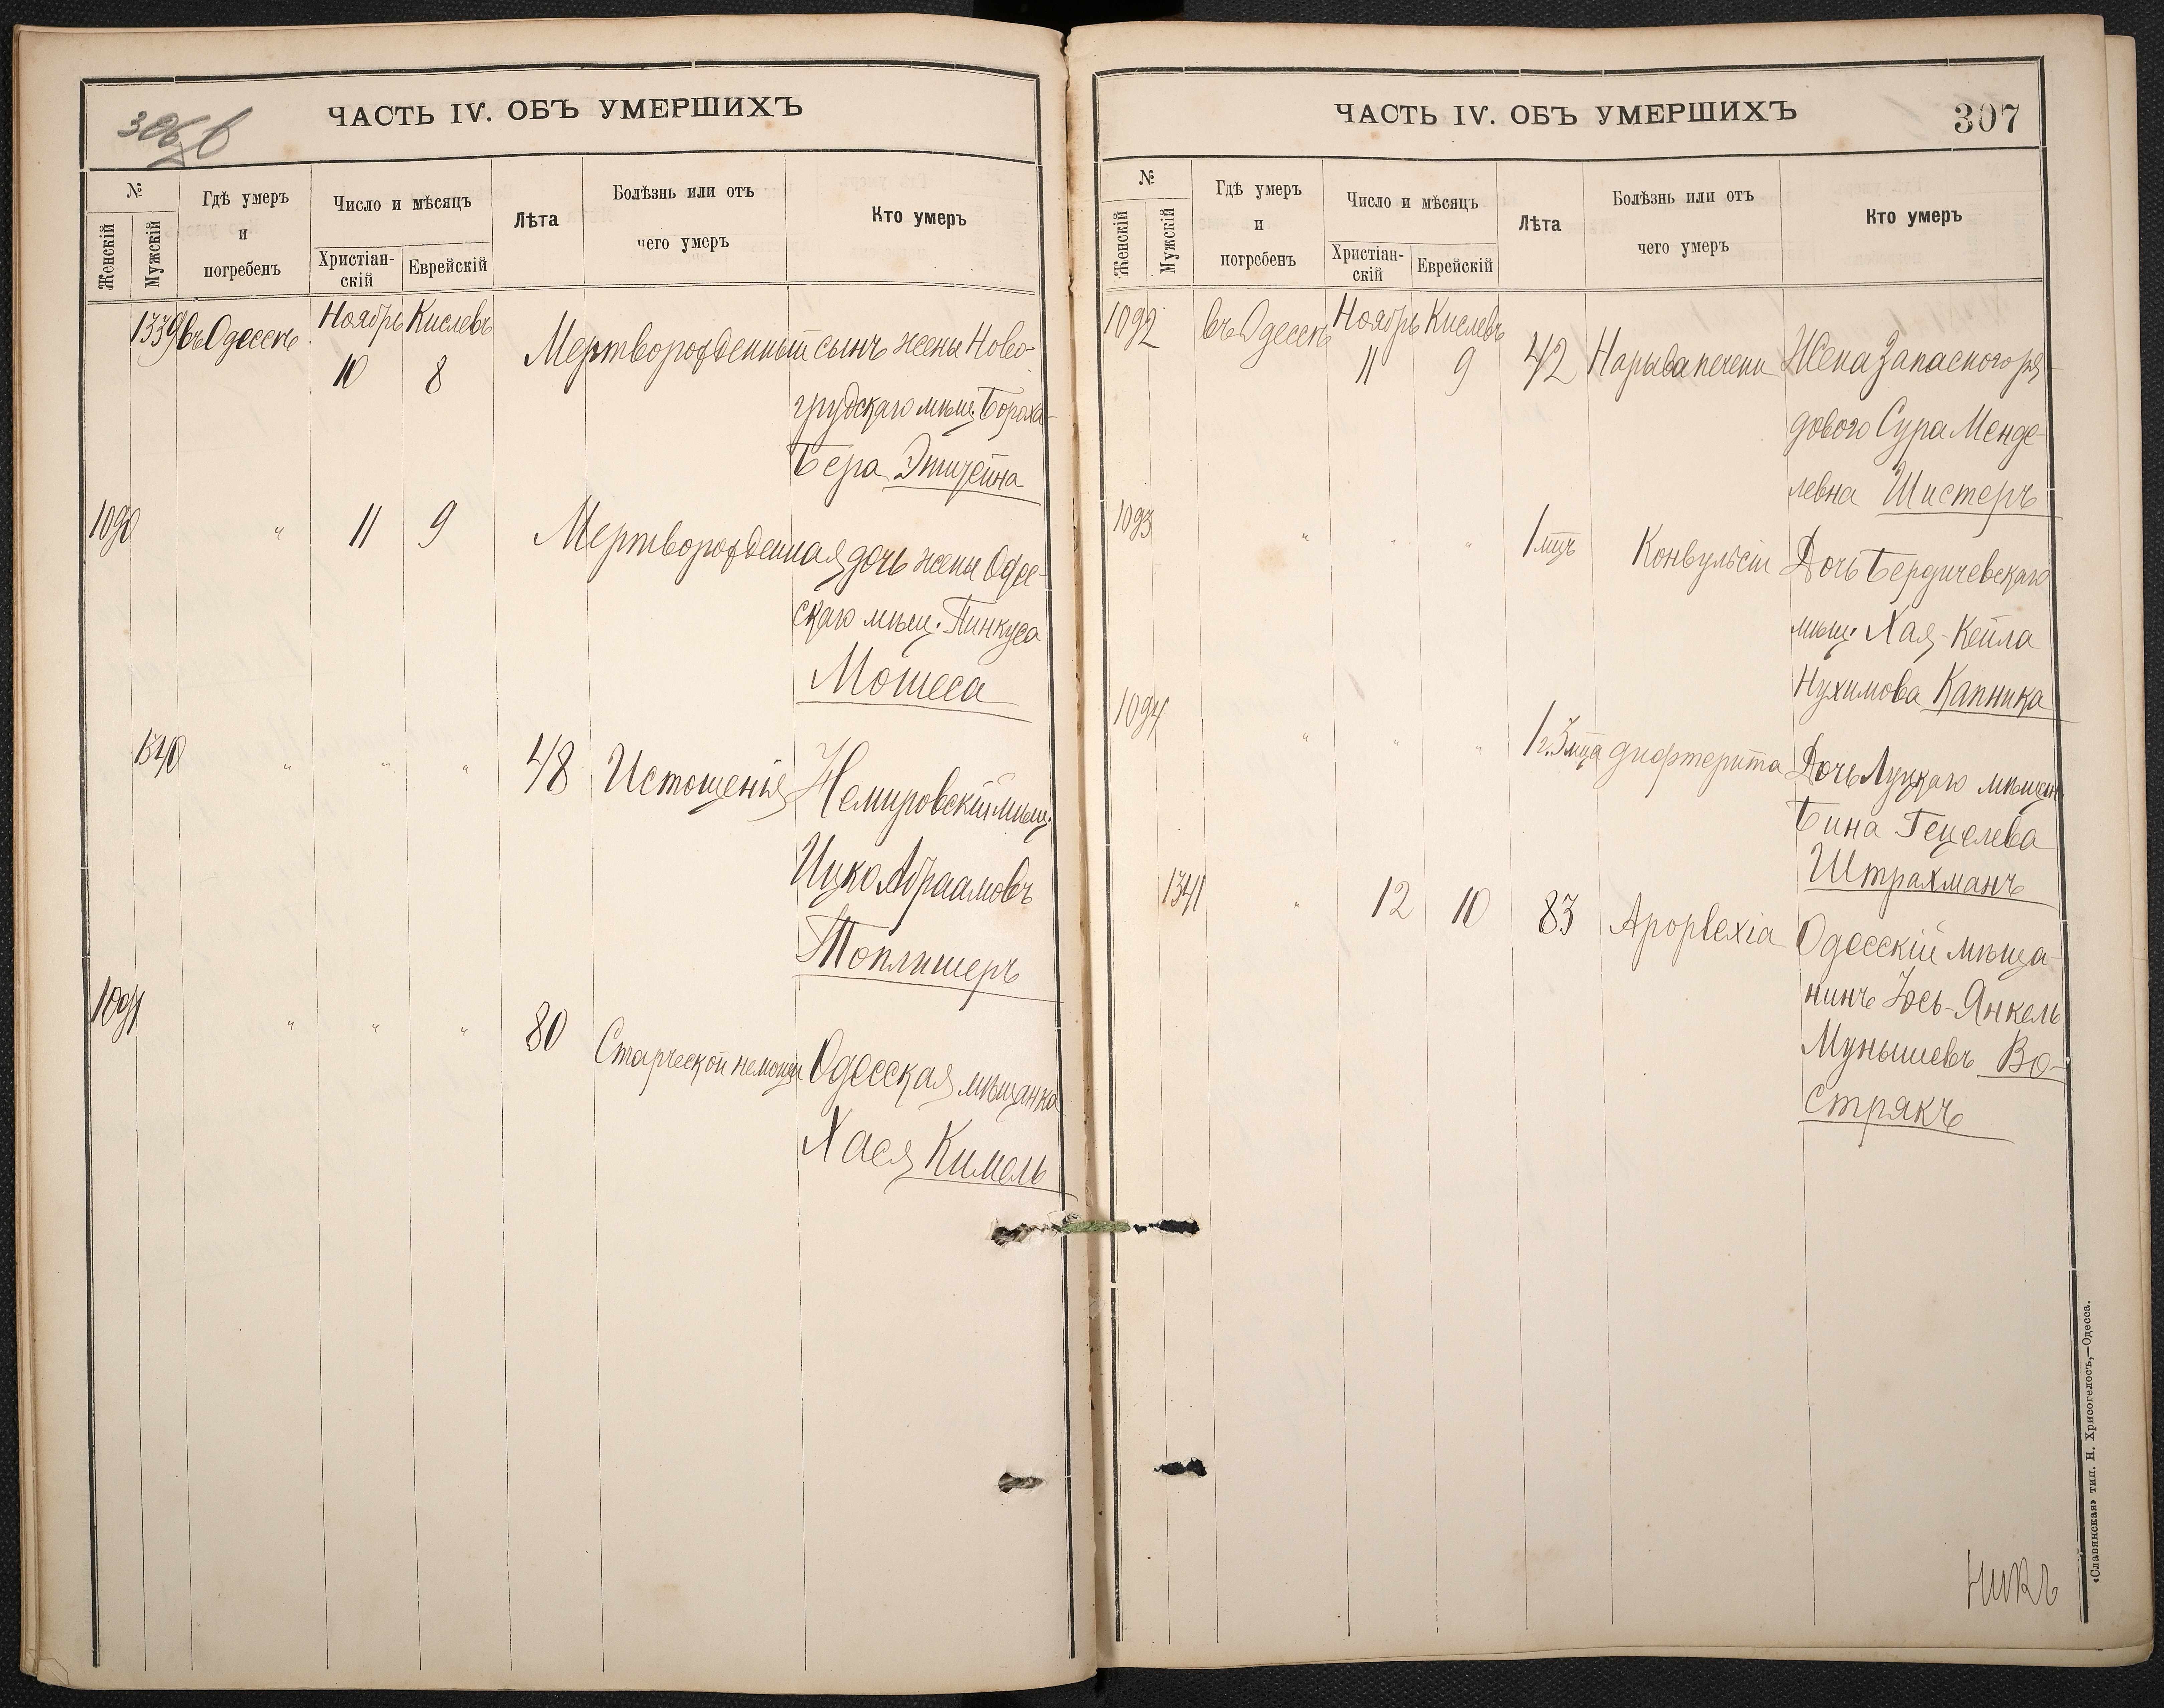 306 б
ЧАСТЬ IV. ОБЪ УМЕРШИХЪ
№
Женскій
Мужскій
Гдѣ умеръ
и
погребенъ
Число и мѣсяцъ
Христіан-
скій
Еврейскій
Лѣта
Болѣзнь или отъ
чего умеръ
Кто умеръ
1339 въ Одессѣ Ноябрь Кислевъ
10 8 Мертворожденный сынъ жены Ново-
грудскаго мѣщ. Бороха-
Бера
1090 " 11 9 Мертворожденная дочь жены Одес-
скаго мѣщ. Пинкуса
Мошеса
1340 " " " 48 Истощенія Немировскій мѣщ.
Ицко Абраамовъ
Топлишеръ
1091 " " " 80 Старческой немощи Одесская мѣщанка
Хася Кимель
ЧАСТЬ IV. ОБЪ УМЕРШИХЪ
307
№
Женскій
Мужскій
Гдѣ умеръ
и
погребенъ
Число и мѣсяцъ
Христіан-
скій
Еврейскій
Лѣта
Болѣзнь или отъ
чего умеръ
Кто умеръ
1092 въ Одессѣ Ноябрь Кислевъ
11 9 42 Нарыва печени Жена Запасного ря-
дового Сура Менде-
левна Шистеръ
1093 " " " 1 мцъ Конвульсіи Дочь Бердичевскаго
мѣщ. Хая-Кейла
Нухимова Капника
1094 " " " 1 г. 3 мца дифтерита Дочь Луцкаго мѣщан.
Бина Гецелева
Штрахманъ
1341 " 12 10 83 Apoplexia Одесскій мѣща-
нинъ Іось-Янкель
Мунышевъ Во-
стрякъ
никъ
«Славянская» тип. Н. Хрисогелосъ,—Одесса.